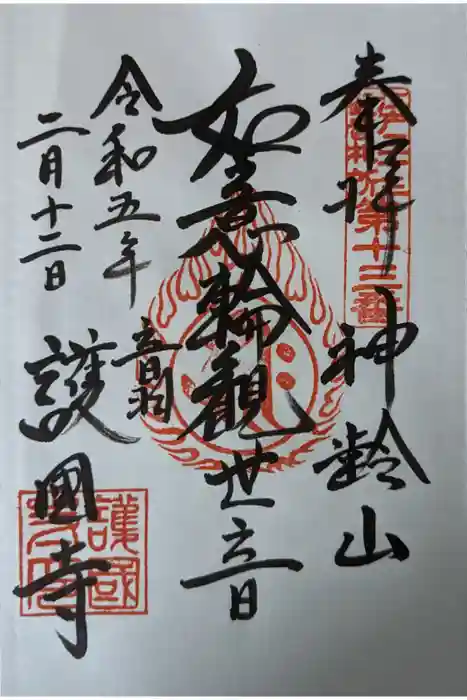 奉拝 神齢山
第十三番
如意輪観世音
音羽
令和五年
二月十二日
護國寺
護國
寺印